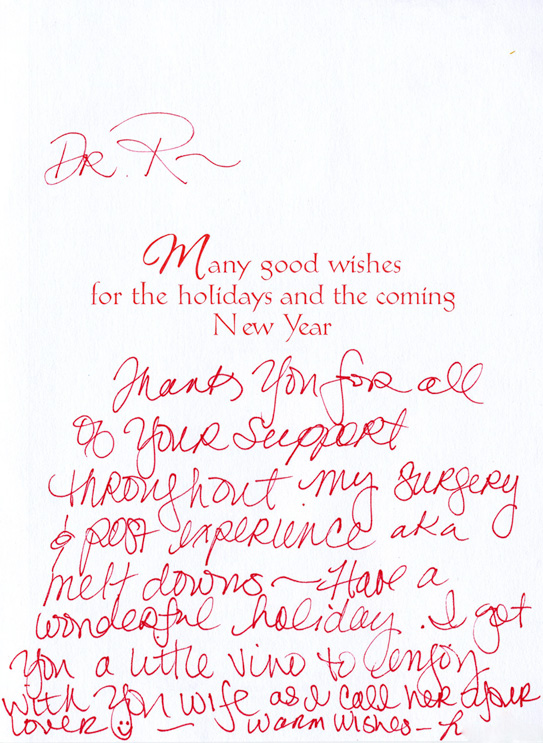 DR. R~
Many good wishes
for the holidays and the coming
New Year
Thanks You for all
of Your Support
throughout my surgery
& post experience aka
melt downs ~ Have a
wonderful holiday. I got
You a little vino to enjoy
with You wife as I call her your
lover ☺ ~ warm wishes - h